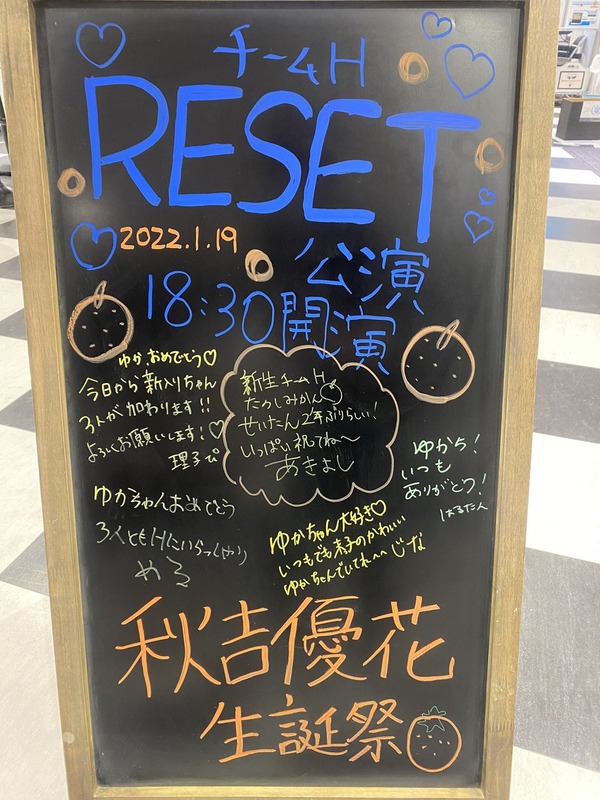 チームH
RESET
2022.1.19
公演
18:30開演
ゆか、おめでとう♡
今日から新入りちゃん
3人が加わります!!
よろしくお願いします!♡
理子ぴ
新生チームH
たのしみかん
せいたん2年ぶりらしい!
いっぱい祝てね〜
あきよし
ゆから!
いつも
ありがとう!
はるたん
ゆかちゃんおめでとう
3人ともHにいらっしゃり
める
ゆかちゃん大好き♡
いつもでも末子のかわいい
ゆかちゃんでいてね〜〜 じな
秋吉優花
生誕祭